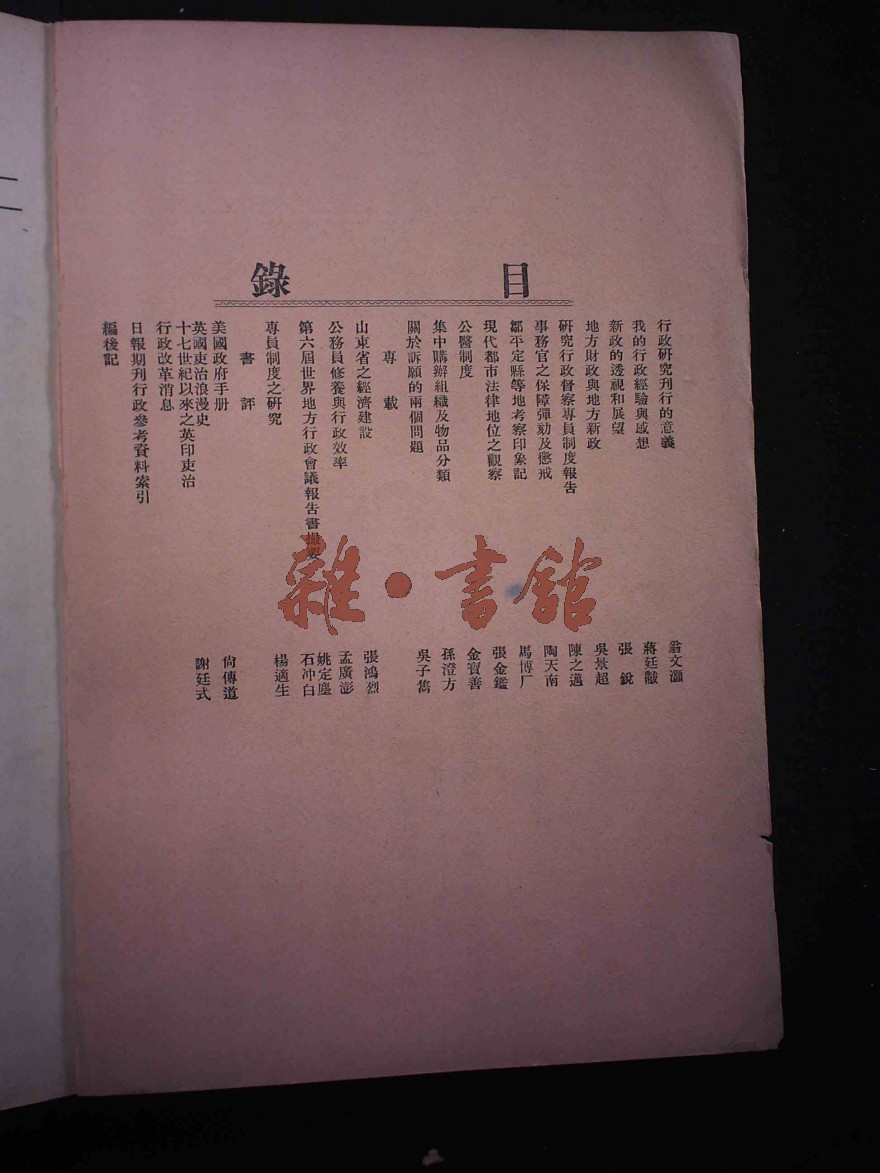 目錄
行政研究刊行的意義 翁文灝
我的行政經驗與感想 蔣廷黻
新政的透視和展望 張銳
地方財政與地方新政 吳景超
研究行政督察專員制度報告 陳之邁
事務官之保障彈劾及懲戒 陶天南
鄒平定縣等地考察印象記 馬博厂
現代都市法律地位之觀察 張金鑑
公醫制度 金寶善
集中購辦組織及物品分類 孫澄方
關於訴願的兩個問題 吳子雋
專載
山東省之經濟建設 張鴻烈
公務員修養與行政效率 孟廣澎
第六屆世界地方行政會議報告書撮要 姚定塵
石冲白
專員制度之研究 楊適生
書評
美國政府手册 尙傳道
英國吏治浪漫史
十七世紀以來之英印吏治 謝廷式
行政改革消息
日報期刊行政參考資料索引
編後記
雜·書館